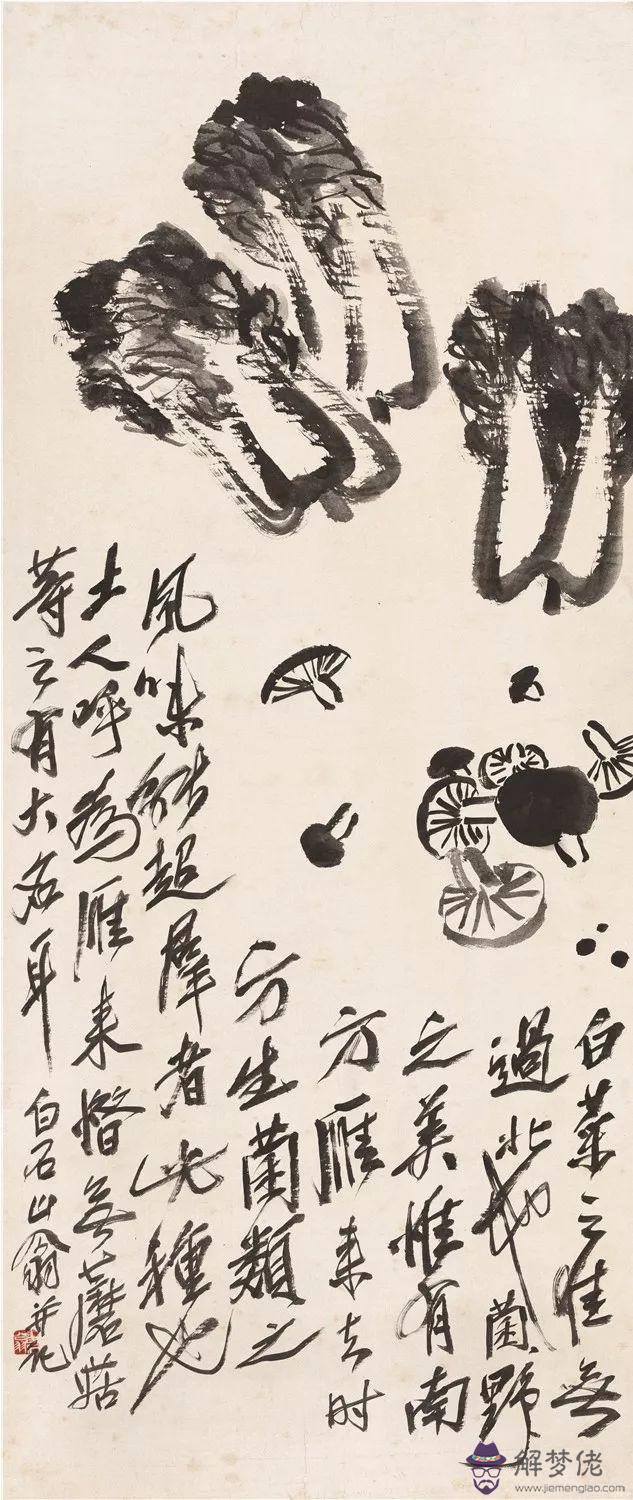 白菜之佳無
過北地菌野
之美惟有南
方雁来去时
方生菌類之
風味能超羣者此種也
土人呼為雁来無蘑菇
等之有大名耳 白石山翁并記
解梦佬
www.jiemenglao.com